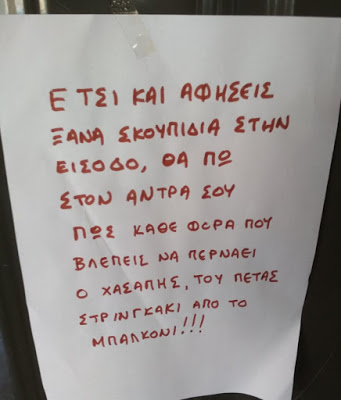 Ε ΤΣΙ ΚΑΙ ΑΦΗΣΕΙΣ
ΞΑΝΑ ΣΚΟΥΠΙΔΙΑ ΣΤΗΝ
ΕΙΣΟΔΟ, ΘΑ ΠΩ
ΣΤΟΝ ΑΝΤΡΑ ΣΟΥ
ΠΩΣ ΚΑΘΕ ΦΟΡΑ ΠΟΥ
ΒΛΕΠΕΙΣ ΝΑ ΠΕΡΝΑΕΙ
Ο ΧΑΣΑΠΗΣ, ΤΟΥ ΠΕΤΑΣ
ΣΤΡΙΝΓΚΑΚΙ ΑΠΟ ΤΟ
ΜΠΑΛΚΟΝΙ!!!